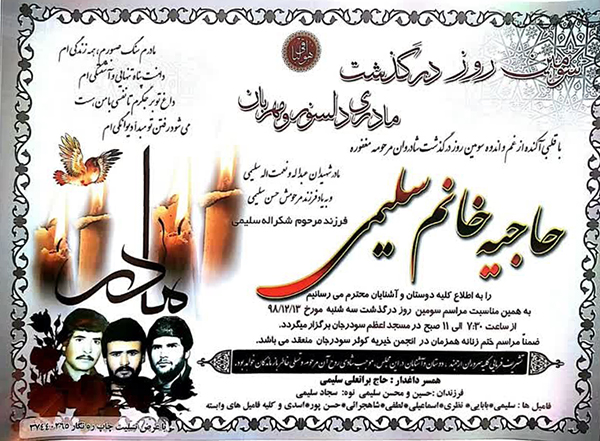 هوالباقی
سومین روز درگذشت
مادری دلسوز و مهربان
مادرم سنگ صبورم، همه زندگی ام
رفت پناه تنهایی و آشفتگی ام
داغ تو بر جگرم تا نفسی با من هست
می شود رفتن تو مبدا دیوانگی ام
با قلبی آکنده از غم و اندوه سومین روز درگذشت شادروان مرحومه مغفوره
مادر شهیدان عبداله و نعمت اله سلیمی
و به یاد فرزند مرحومش حسن سلیمی
فرزند مرحوم شکراله سلیمی
حاجیه خانم سلیمی
مادر
را به اطلاع کلیه دوستان و آشنایان محترم می رسانیم
به همین مناسبت مراسم سومین روز درگذشت سه شنبه مورخ ۹۸/۱۲/۱۳
از ساعت ۷:۳۰ الی ۱۱ صبح در مسجد اعظم سودرجان برگزار میگردد.
ضمناً مراسم ختم زنانه همزمان در انجمن خیریه کوثر سودرجان منعقد می باشد.
تشریف فرمایی کلیه سروران ارجمند، دوستان و آشنایان در این مجلس، موجب شادی روح آن مرحومه و تسلی خاطر بازماندگان خواهد بود.
همسر داغدار: حاج براتعلی سلیمی
فرزندان: حسین و محسن سلیمی نوه: سجاد سلیمی
فامیل ها: سلیمی - بابایی - نظری - اسماعیلی - لطفی - شاهچراغی - حسن پور - اسدی و کلیه فامیل های وابسته
با عرض تسلیت چاپ ره نگار ۳۷۴۴۰۲۶۵